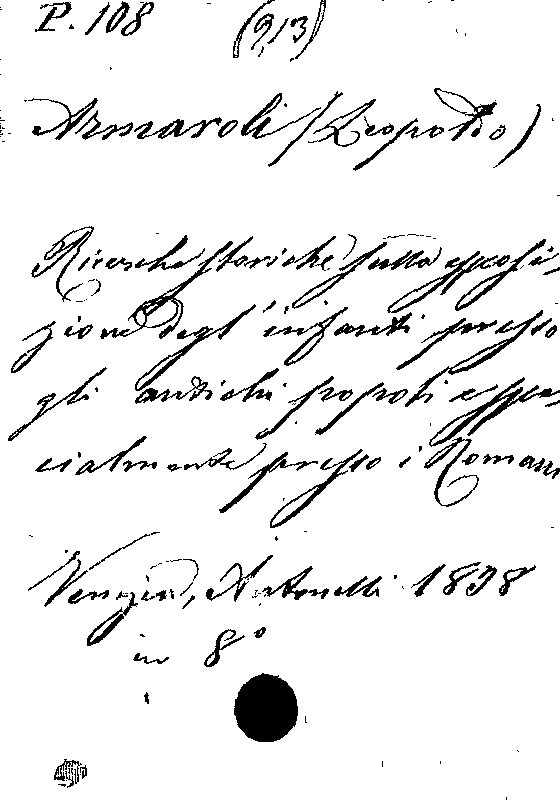 P. 108 (213)
Armaroli (Leopoldo)
Ricerche storiche sulla esposi-
zione degl'infanti presso
gli antichi popoli e spe-
cialmente presso i Romani
Venezia, Antonelli 1838
in 8°